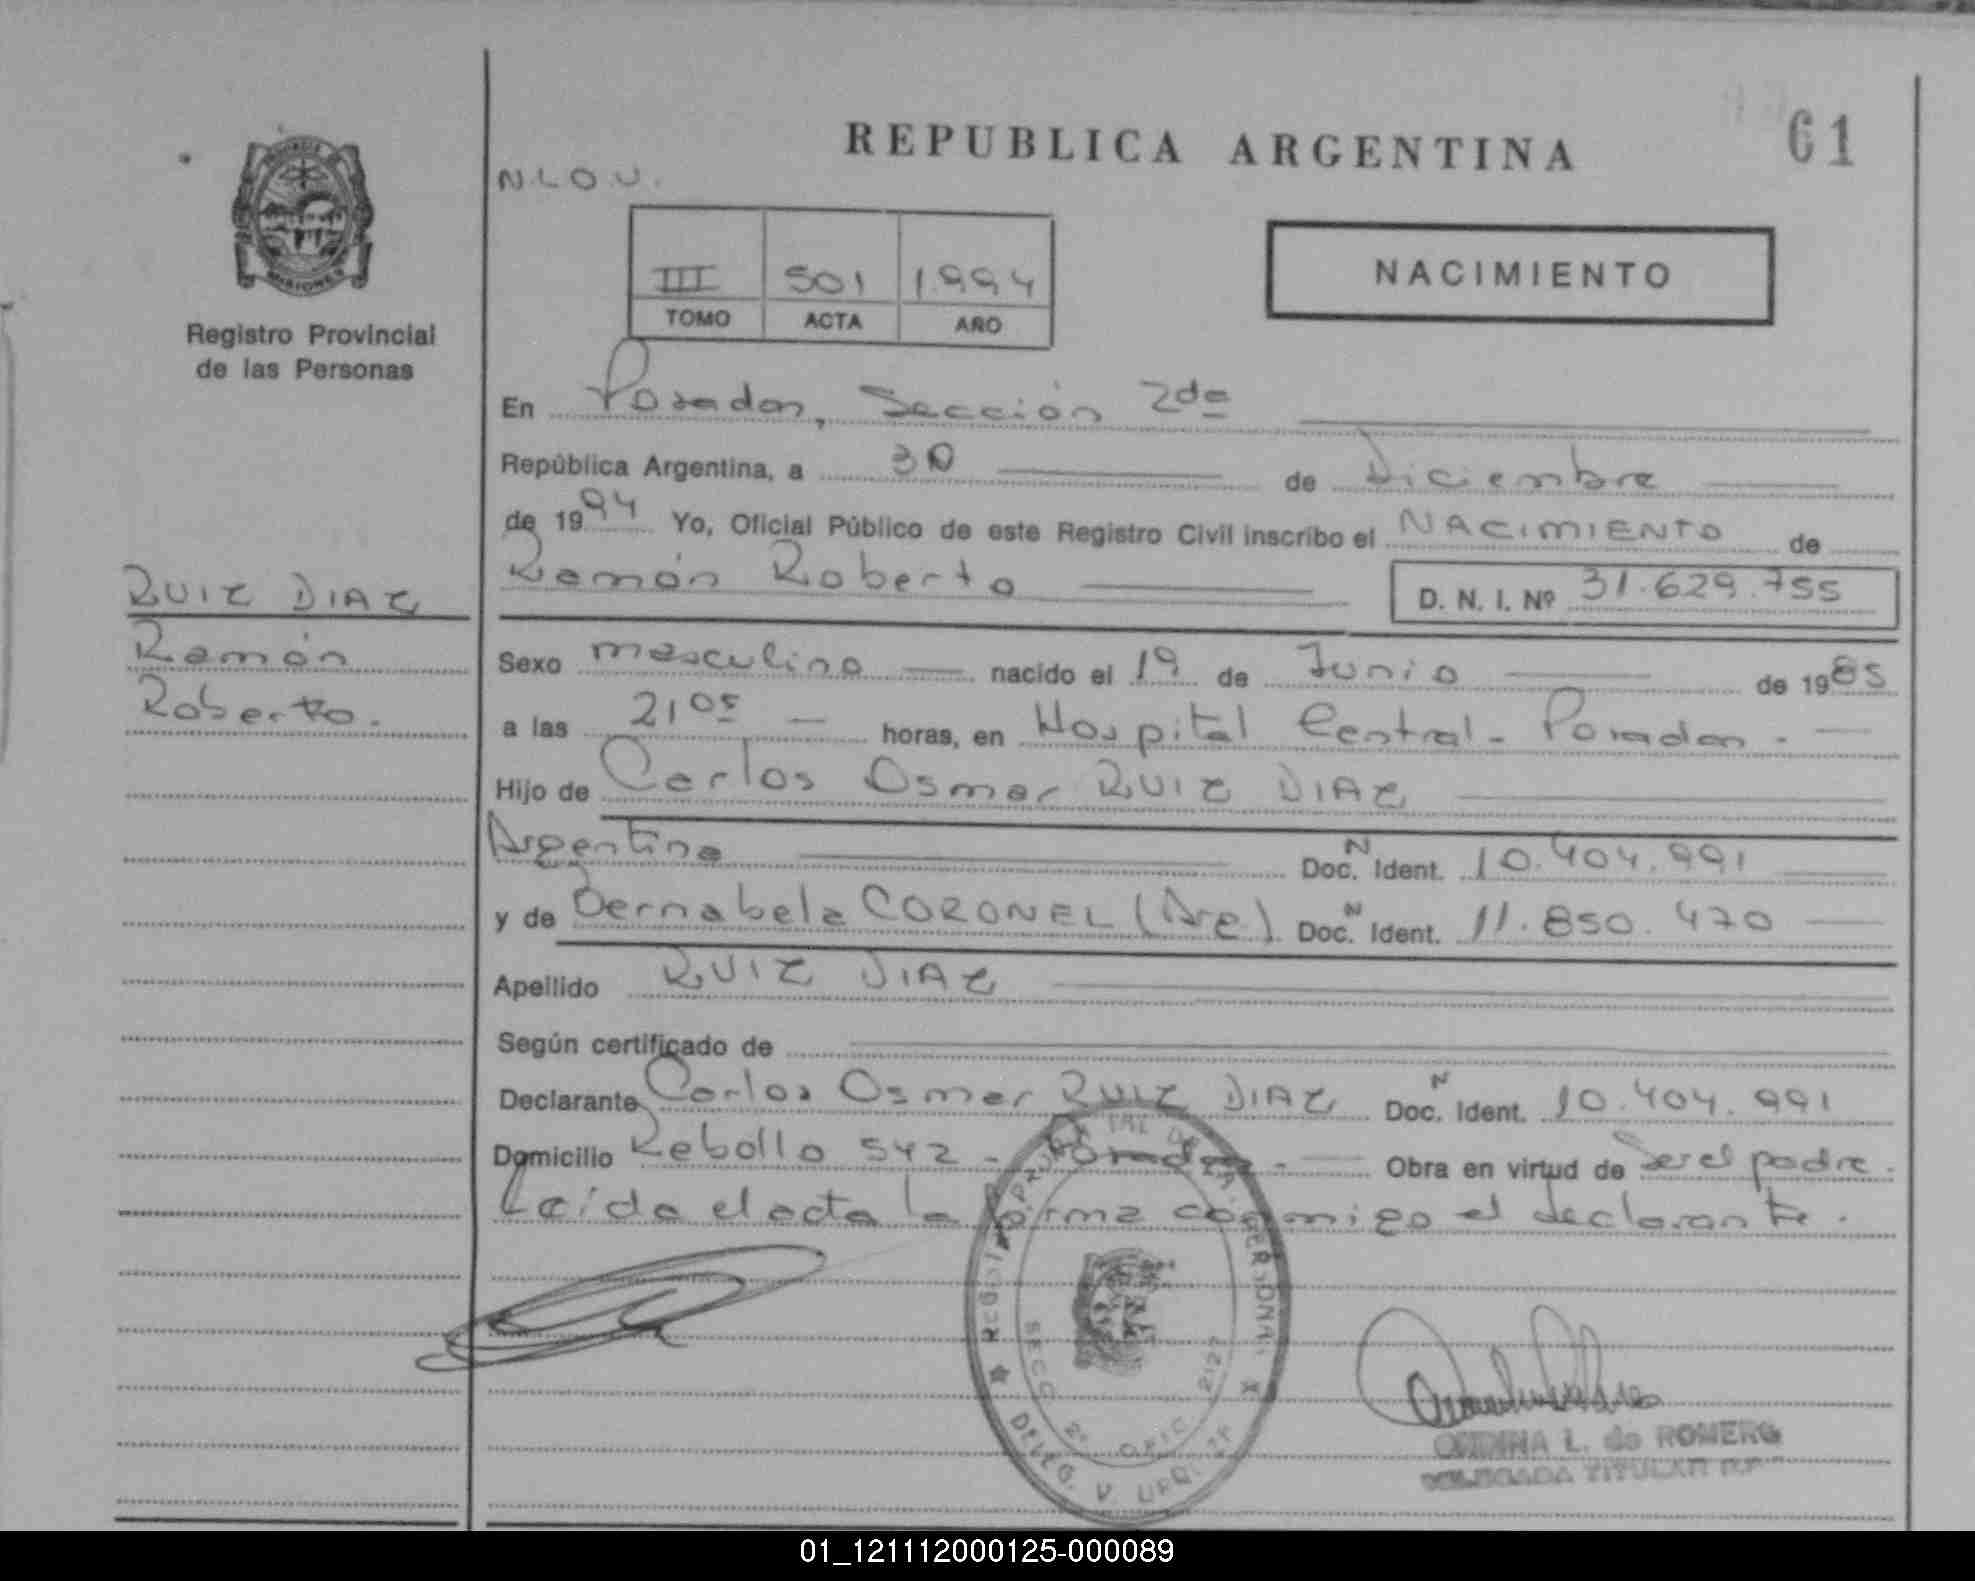 REPUBLICA ARGENTINA
61
N.L.O.U.
III 501 1.994
TOMO ACTA AÑO
NACIMIENTO
MISIONES
Registro Provincial
de las Personas
En Posadas, Sección 2da
República Argentina, a 30 de Diciembre
de 1994 Yo, Oficial Público de este Registro Civil inscribo el NACIMIENTO de
Ramón Roberto D. N. I. Nº 31.629.755
RUIZ DIAZ
Ramón
Roberto.
Sexo masculino nacido el 19 de Junio de 1985
a las 21 05 horas, en Hospital Central - Posadas.
Hijo de Carlos Osmar RUIZ DIAZ
Argentina Doc. N Ident. 10.404.991
y de Bernabela CORONEL (Arg.) Doc. N Ident. 11.850.470
Apellido RUIZ DIAZ
Según certificado de
Declarante Carlos Osmar RUIZ DIAZ Doc. N Ident. 10.404.991
Domicilio Rebollo 542 - Posadas. Obra en virtud de Ser el padre.
Leída el acta la firma conmigo el declarante.
SECC 2º OFIC 2127
DELEG. V. URQUIZA
L. de ROMERO
DELEGADA TITULAR
01_121112000125-000089